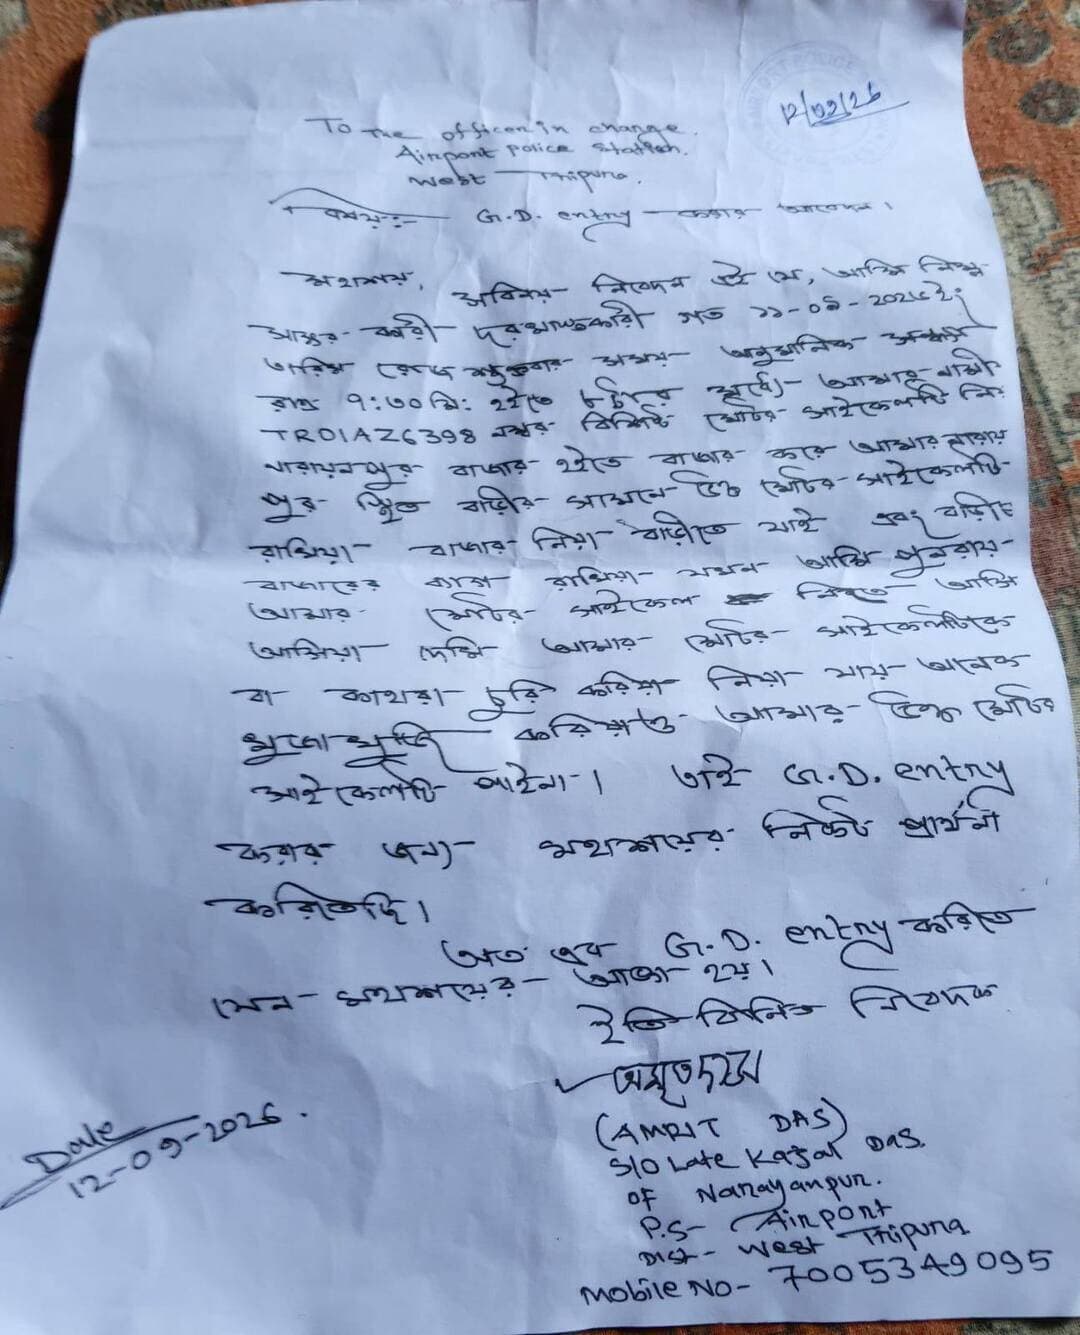 12/09/26
To The officer in change.
Airport police station.
West Tripura.
বিষয়ঃ- G.D. entry করার আবেদন।
মহাশয়,
সবিনয় নিবেদন এই যে, আমি নিম্ন
সাক্ষর কারী দরখাস্তকারী গত ১১-০৯-২০২৬ ইং
তারিখ রোজ শুক্রবার সময় আনুমানিক সন্ধ্যা
রাত্র ৭:৩০ মি: হইতে ৮টার মধ্যে আমার নামী
TR01AZ6398 নম্বর বিশিষ্ট মোটর সাইকেলটি নি
নারায়নপুর বাজার হইতে বাজার করে আমার নারায়ন
পুর স্থিত বাড়ীর সামনে উক্ত মোটর সাইকেলটি
রাখিয়া বাজার নিয়া বাড়ীতে যাই এবং বাড়ীতে
বাজারের রাখিয়া যখন আমি পুনরায়
আমার মোটর সাইকেল নিতে আমি
আসিয়া দেখি আমার মোটর সাইকেলটিকে
বা কাহারা চুরি করিয়া নিয়া যায় অনেক
খুজো খুজি করিয়াও আমার উক্ত মোটর
সাইকেলটি পাইনা। তাই G.D. entry
করার জন্য মহাশয়ের নিকট প্রার্থনা
করিতেছি।
অত এব G.D. entry করিতে
যেন মহাশয়ের আজ্ঞা হয়।
ইতি বিনিত নিবেদক
অমৃত দাস
(AMRIT DAS)
S/O Late Kajal Das.
of Narayanpur.
P.S- Airport
Dist- West Tripura
Mobile No- 7005349095
Date
12-09-2026.